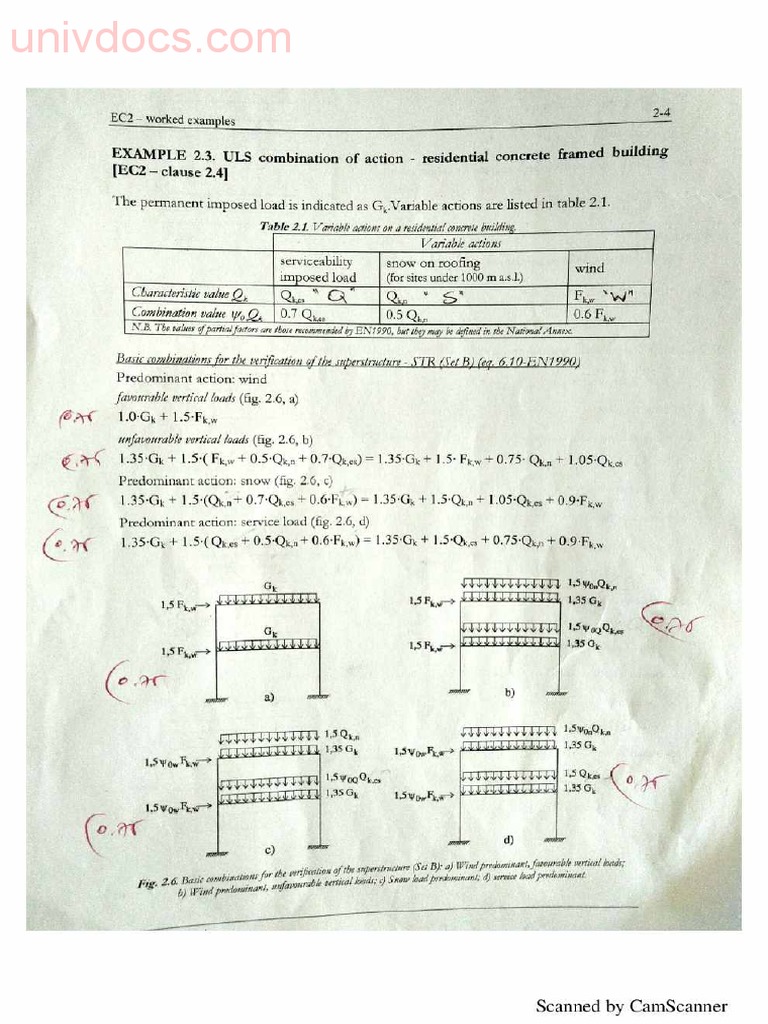 univdocs.com
EC2 – worked examples 2-4
EXAMPLE 2.3. ULS combination of action - residential concrete framed building
[EC2 – clause 2.4]
The permanent imposed load is indicated as Gk.Variable actions are listed in table 2.1.
Table 2.1. Variable actions on a residential concrete building.
Variable actions
serviceability imposed load snow on roofing (for sites under 1000 m a.s.l.) wind
Characteristic value Qk Qk,es "Q" Qk,n "S" Fk,w "W"
Combination value ψ0 Qk 0.7 Qk,es 0.5 Qk,n 0.6 Fk,w
N.B. The values of partial factors are those recommended by EN1990, but they may be defined in the National Annex.
Basic combinations for the verification of the superstructure - STR (Set B) (eq. 6.10-EN1990)
Predominant action: wind
favourable vertical loads (fig. 2.6, a)
1.0·Gk + 1.5·Fk,w
unfavourable vertical loads (fig. 2.6, b)
1.35·Gk + 1.5·( Fk,w + 0.5·Qk,n + 0.7·Qk,es) = 1.35·Gk + 1.5· Fk,w + 0.75· Qk,n + 1.05·Qk,es
Predominant action: snow (fig. 2.6, c)
1.35·Gk + 1.5·(Qk,n + 0.7·Qk,es + 0.6·Fk,w) = 1.35·Gk + 1.5·Qk,n + 1.05·Qk,es + 0.9·Fk,w
Predominant action: service load (fig. 2.6, d)
1.35·Gk + 1.5·( Qk,es + 0.5·Qk,n + 0.6·Fk,w) = 1.35·Gk + 1.5·Qk,es + 0.75·Qk,n + 0.9·Fk,w
Gk
1,5 Fk,w
Gk
1,5 Fk,w
a)
1,5 ψ0nQk,n
1,5 Fk,w 1,35 Gk
1,5 ψ0QQk,es
1,5 Fk,w 1,35 Gk
b)
1,5 Qk,n
1,35 Gk
1,5 ψ0w Fk,w
1,5 ψ0QQk,es
1,35 Gk
1,5 ψ0w Fk,w
c)
1,5 ψ0nQk,n
1,5 ψ0w Fk,w 1,35 Gk
1,5 Qk,es
1,5 ψ0w Fk,w 1,35 Gk
d)
Fig. 2.6. Basic combinations for the verification of the superstructure (Set B): a) Wind predominant, favourable vertical loads;
b) Wind predominant, unfavourable vertical loads; c) Snow load predominant; d) service load predominant.
Scanned by CamScanner